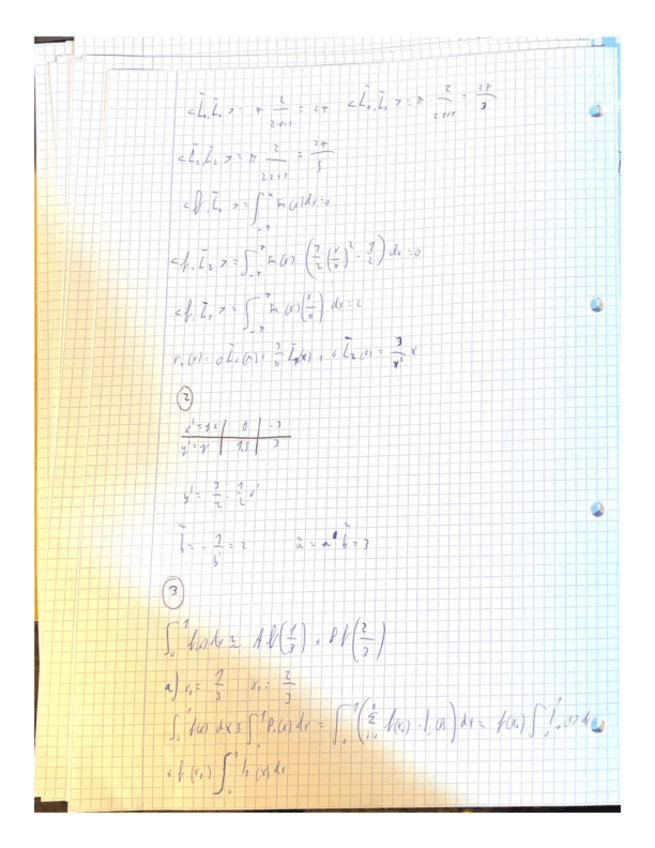 <L̃₀, L̃₀> = π 2/(2·0+1) = 2π <L̃₁, L̃₁> = π 2/(2·1+1) = 2π/3
<L̃₂, L̃₂> = π 2/(2·2+1) = 2π/5
<f, L̃₀> = ∫_{-π}^{π} sin(x) dx = 0
<f, L̃₂> = ∫_{-π}^{π} sin(x) (3/2 (x/π)² - 1/2) dx = 0
<f, L̃₁> = ∫_{-π}^{π} sin(x) (x/π) dx = 2
(x) = 0 L̃₀(x) + 3/π L̃₁(x) + 0 L̃₂(x) = 3/π² x
②
0 | -3
1,5 | 3
y' = 3/2 - 1/2 x'
b̃ = - 1/b' = 2 ã = a' b̃ = 3
③
∫₀¹ f(x) dx ≈ A f(1/3) + B f(2/3)
a) x₀ = 1/3 x₁ = 2/3
∫₀¹ f(x) dx ≈ ∫₀¹ P₁(x) dx = ∫₀¹ (Σ_{i=0}^{1} f(x_i) · l_i(x)) dx = f(x₀) ∫₀¹ l₀(x) dx
+ f(x₁) ∫₀¹ l₁(x) dx